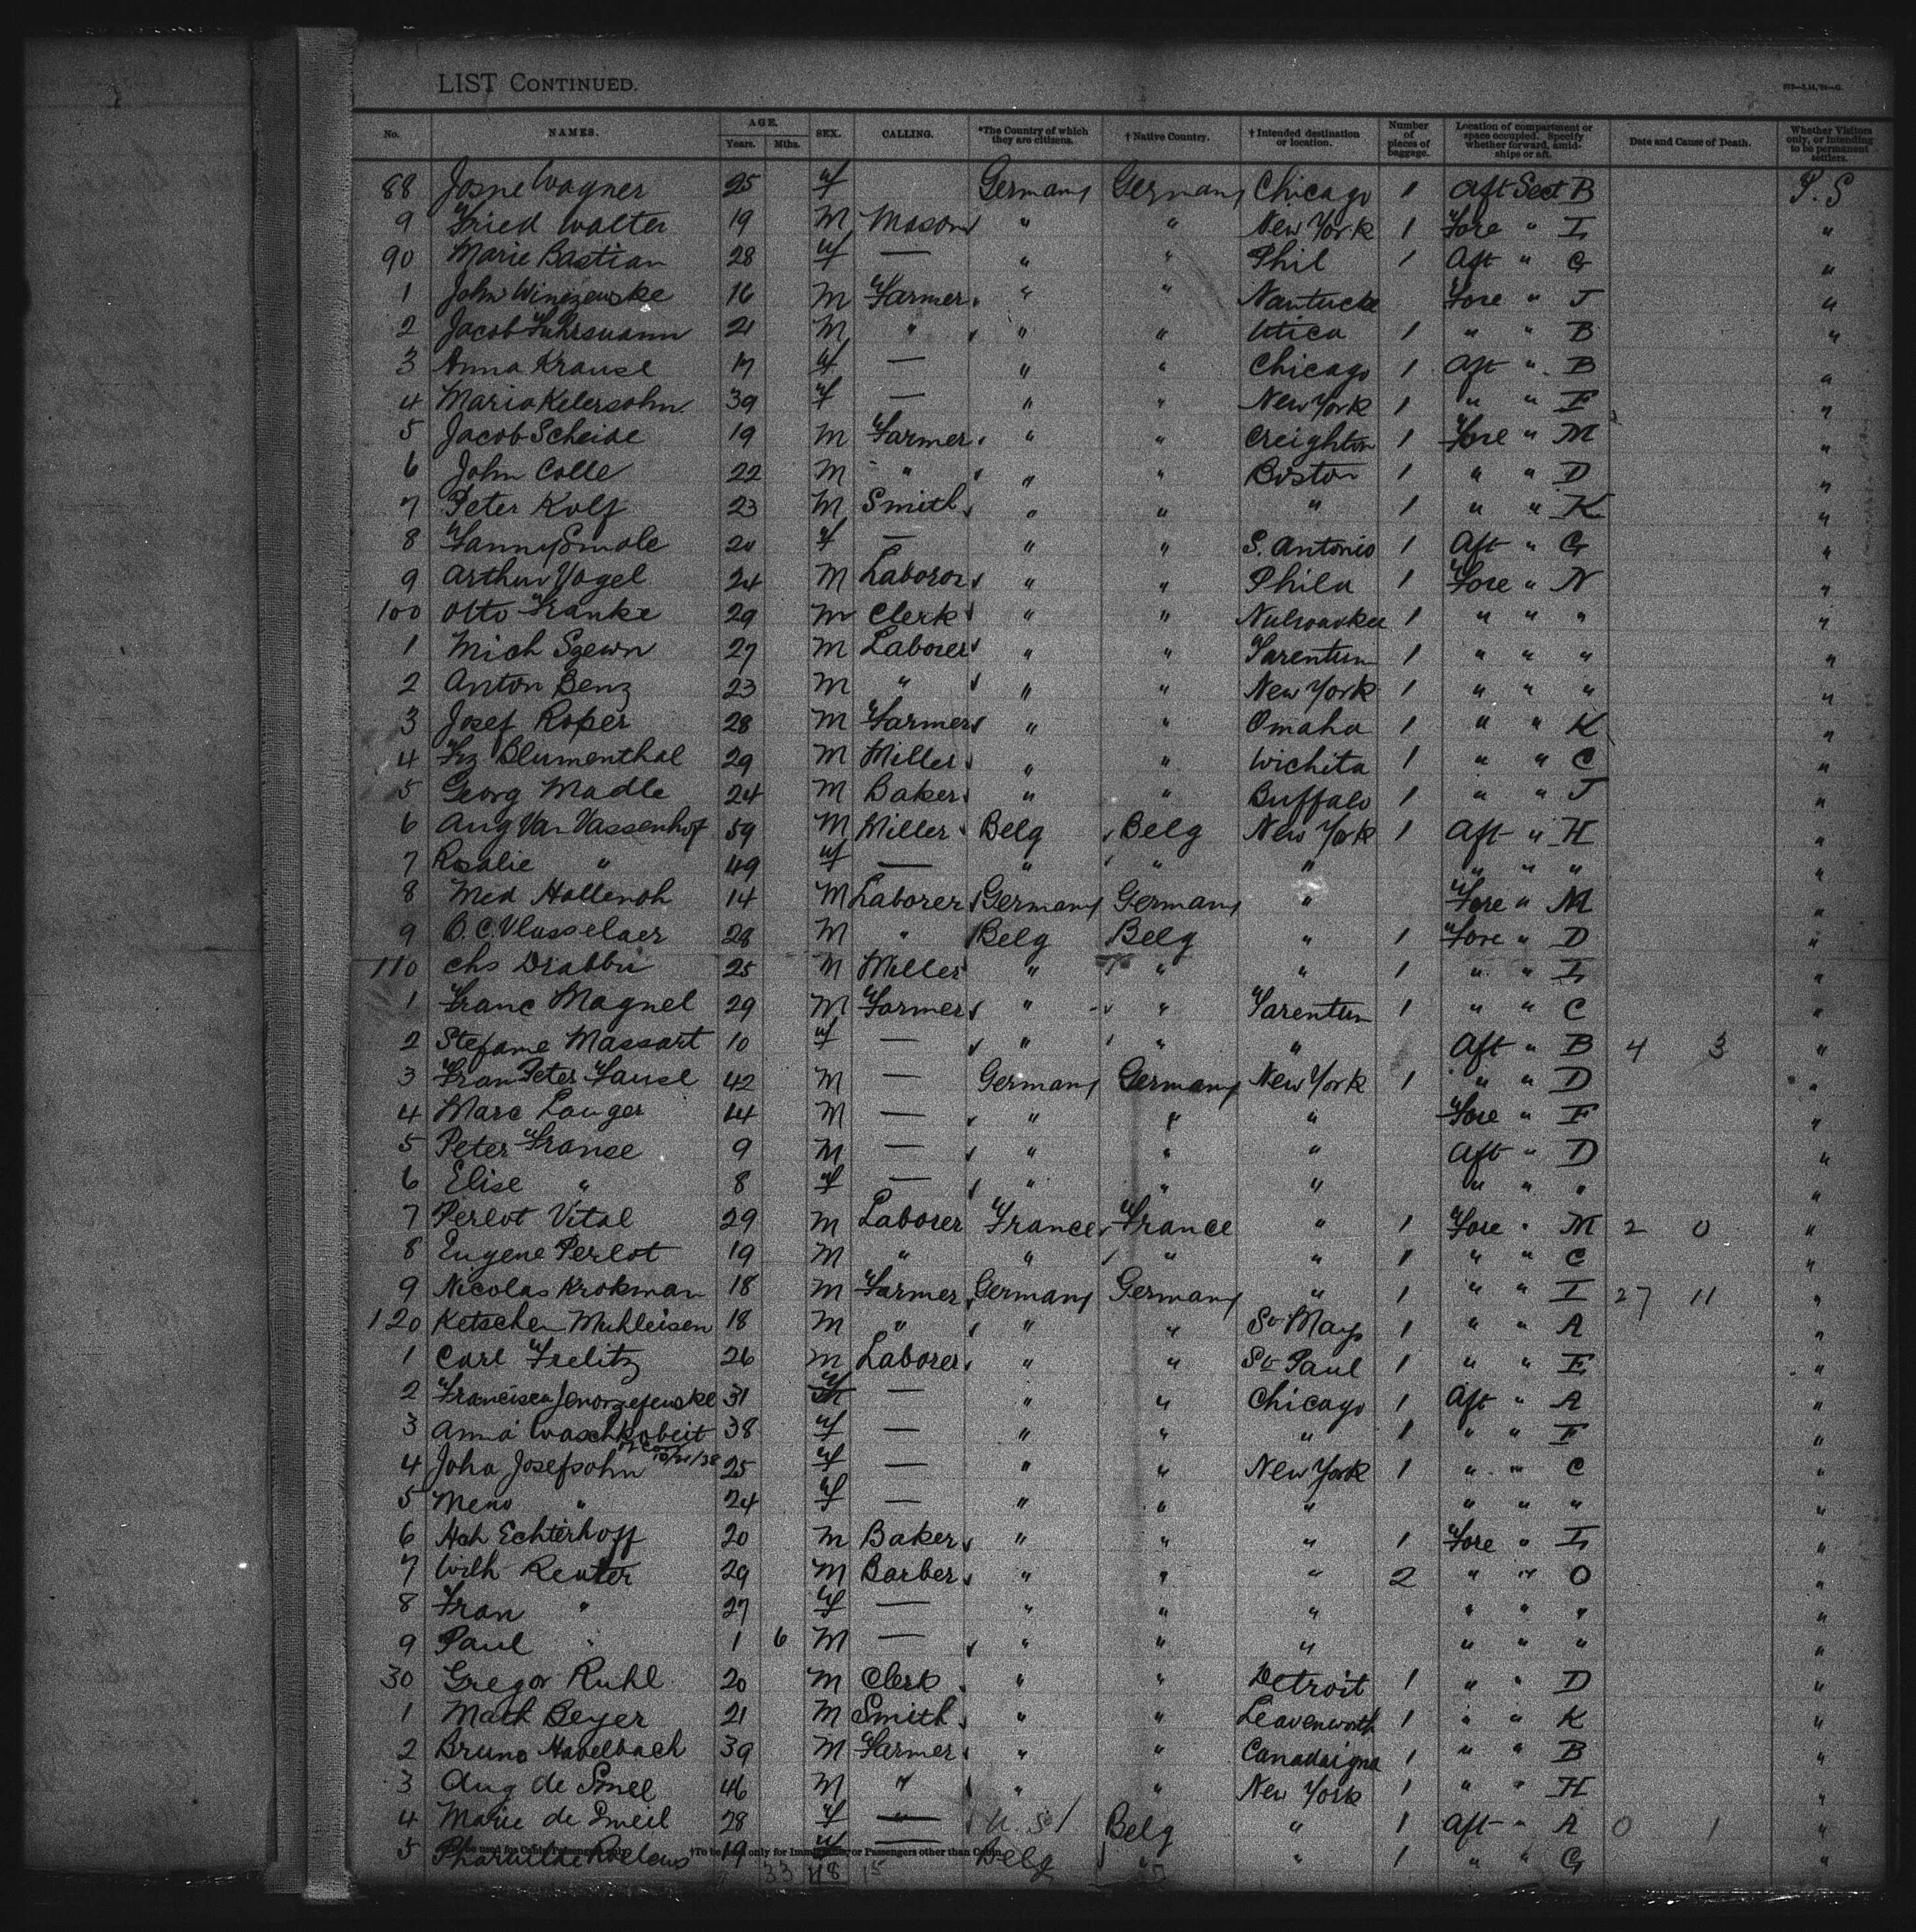 LIST CONTINUED.
No. NAMES. AGE. Years. Mths. SEX. CALLING. *The Country of which they are citizens. † Native Country. † Intended destination or location. Number of pieces of baggage. Location of compartment or space occupied. Specify whether forward, amidships or aft. Date and Cause of Death. Whether Visitors only, or intending to be permanent settlers.
88 Josne Wagner 25 f Germany Germany Chicago 1 Aft Sect B P.S
9 Fried Walter 19 M Mason " " New York 1 Fore " L "
90 Marie Bastian 28 f — " " Phil 1 Aft " G "
1 John Winizewske 16 M Farmer " " Nantucke Fore " J "
2 Jacob Fuhrsmann 21 M " " " Utica 1 " " B "
3 Anna Krause 17 f — " " Chicago 1 Aft " B "
4 Maria Kelersohn 39 f — " " New York 1 " " F "
5 Jacob Scheide 19 M Farmer " " Creighton 1 Fore " M "
6 John Colle 22 M " " " Boston 1 " " D "
7 Peter Kolf 23 M Smith " " " 1 " " K "
8 Fanny Smole 20 f — " " S. Antonio 1 Aft " G "
9 Arthur Vogel 24 M Laboror " " Phila 1 Fore " N "
100 Otto Franke 29 M Clerk " " Nulwaukee 1 " " " "
1 Mich Sgewn 27 M Laborer " " Tarentum 1 " " " "
2 Anton Benz 23 M " " " New York 1 " " " "
3 Josef Roper 28 M Farmer " " Omaha 1 " " K "
4 Frz Blumenthal 29 M Miller " " Wichita 1 " " C "
5 Georg Madle 24 M Baker " " Buffalo 1 " " J "
6 Aug Van Vassenhof 59 M Miller Belg Belg New York 1 Aft " H "
7 Rosalie " 49 f — " " " " " " "
8 Med Hollenoh 14 M Laborer Germany Germany " Fore " M "
9 B. C. Vlasselaer 28 M " Belg Belg " 1 Fore " D "
110 Chs Drabbii 25 M Miller " " " 1 " " L "
1 Franc Magnel 29 M Farmer " " Tarentum 1 " " C "
2 Stefame Massart 10 f — " " " Aft " B 4 3 "
3 Fran Peter Fause 42 M — Germany Germany New York 1 " " D "
4 Marc Langer 14 M — " " " Fore " F "
5 Peter Franse 9 M — " " " Aft " D "
6 Elise " 8 f — " " " " " " "
7 Perlot Vital 29 M Laborer France France " 1 Fore " M 2 0 "
8 Eugene Perlot 19 M " " " " 1 " " C "
9 Nicolas Krokman 18 M Farmer Germany Germany " 1 " " I 27 11 "
120 Ketschen Muhleisen 18 M " " " St Mays 1 " " A "
1 Carl Frelitz 26 M Laborer " " St Paul 1 " " E "
2 Francisca 31 f — " " Chicago 1 Aft " A "
3 Anna Waschkobeit 38 f — " " " 1 " " F "
4 Joha Josefsohn 25 f — " " New York 1 " " C "
5 Meno " 24 f — " " " " " " "
6 Hch Echterhoff 20 M Baker " " " 1 Fore " L "
7 Wilh Reuter 29 M Barber " " " 2 " " O "
8 Fran " 27 f — " " " " " " "
9 Paul " 1 6 M — " " " " " " "
30 Gregor Ruhl 20 M Clerk " " Detroit 1 " " D "
1 Math Beyer 21 M Smith " " Leavenworth 1 " " K "
2 Bruno Habelbach 39 M Farmer " " Canadaigna 1 " " B "
3 Aug de Smel 46 M " " " New York 1 " " H "
4 Marie de Smeil 28 f — U.S. Belg " 1 Aft " A 0 1 "
5 19 f — Belg " " 1 " " G "
†To be used only for Immigrants, or Passengers other than Cabin.
33 48 15